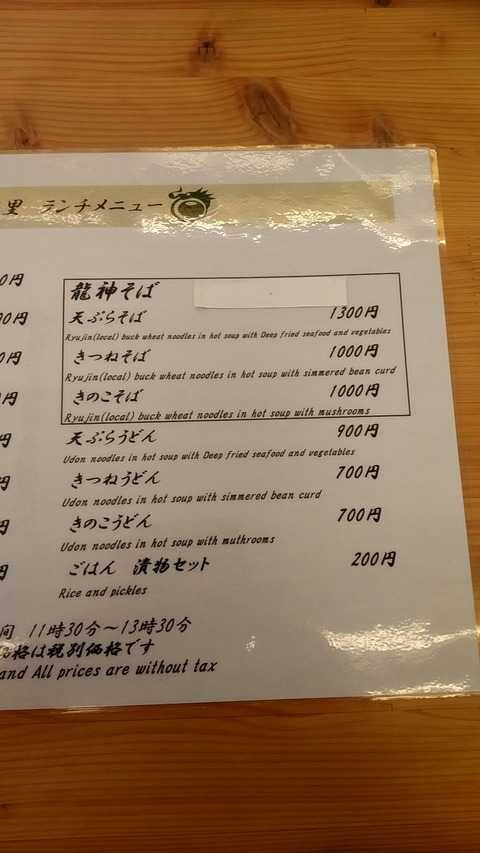 里 ランチメニュー
0円
龍神そば
00円
天ぷらそば 1300円
Ryujin(local) buck wheat noodles in hot soup with Deep fried seafood and vegetables
0円
きつねそば 1000円
Ryujin(local) buck wheat noodles in hot soup with simmered bean curd
0円
きのこそば 1000円
Ryujin(local) buck wheat noodles in hot soup with mushrooms
円
天ぷらうどん 900円
Udon noodles in hot soup with Deep fried seafood and vegetables
円
きつねうどん 700円
Udon noodles in hot soup with simmered bean curd
円
きのこうどん 700円
Udon noodles in hot soup with muthrooms
円
ごはん 漬物セット 200円
Rice and pickles
間 11時30分～13時30分
格は税別価格です
and All prices are without tax